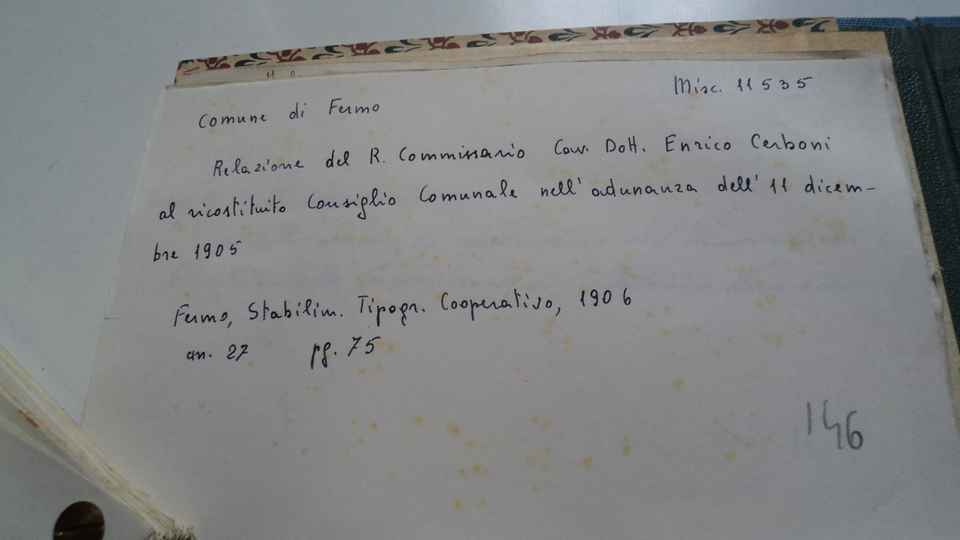 Misc. 11535
Comune di Fermo
Relazione del R. Commissario Cav. Dott. Enrico Cerboni
al ricostituito Consiglio Comunale nell'adunanza dell'11 dicem-
bre 1905
Fermo, Stabilim. Tipogr. Cooperativo, 1906
cm. 27 pg. 75
146